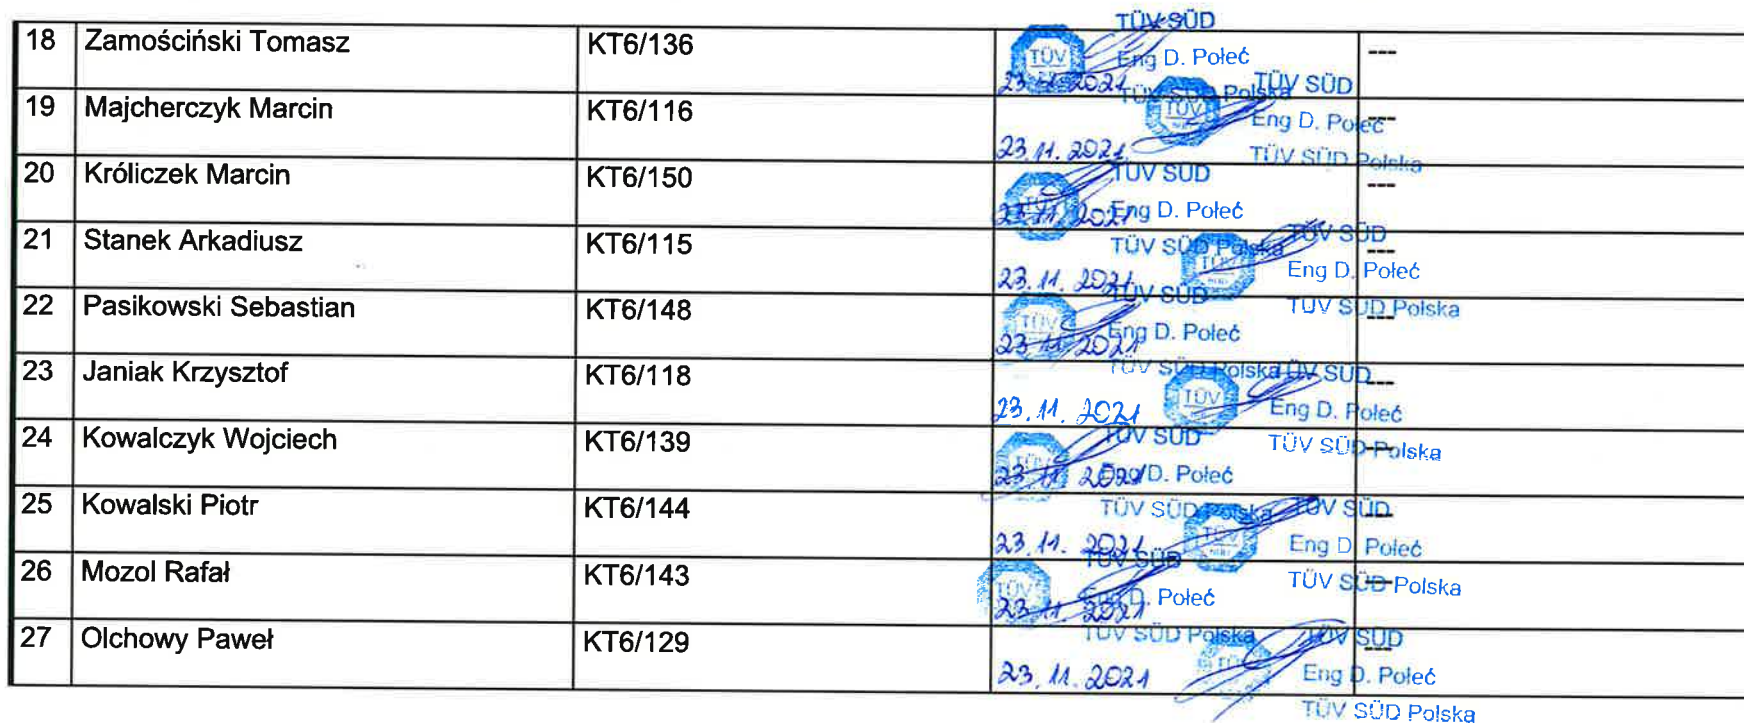 18 Zamościński Tomasz KT6/136 ---
TÜV SÜD
TÜV Eng D. Połeć
23.11.2021
TÜV SÜD Polska
19 Majcherczyk Marcin KT6/116 ---
TÜV SÜD
TÜV Eng D. Połeć
23.11.2021
TÜV SÜD Polska
20 Króliczek Marcin KT6/150 ---
TÜV SÜD
Eng D. Połeć
23.11.2021
TÜV SÜD Polska
21 Stanek Arkadiusz KT6/115 ---
TÜV SÜD
TÜV Eng D. Połeć
23.11.2021
TÜV SÜD Polska
22 Pasikowski Sebastian KT6/148 ---
TÜV SÜD
TÜV Eng D. Połeć
23.11.2021
TÜV SÜD Polska
23 Janiak Krzysztof KT6/118 ---
TÜV SÜD
TÜV Eng D. Połeć
23.11.2021
TÜV SÜD Polska
24 Kowalczyk Wojciech KT6/139 ---
TÜV SÜD
TÜV Eng D. Połeć
23.11.2021
TÜV SÜD Polska
25 Kowalski Piotr KT6/144 ---
TÜV SÜD
TÜV Eng D. Połeć
23.11.2021
TÜV SÜD Polska
26 Mozol Rafał KT6/143 ---
TÜV SÜD
TÜV Eng D. Połeć
23.11.2021
TÜV SÜD Polska
27 Olchowy Paweł KT6/129 ---
TÜV SÜD
TÜV Eng D. Połeć
23.11.2021
TÜV SÜD Polska